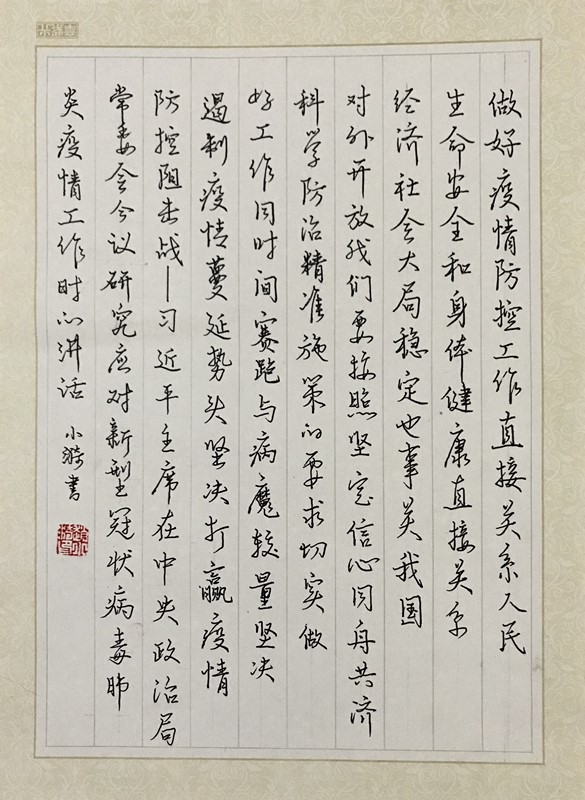 做好疫情防控工作直接关系人民
生命安全和身体健康直接关系
经济社会大局稳定也事关我国
对外开放我们要按照坚定信心同舟共济
科学防治精准施策的要求切实做
好工作同时间赛跑与病魔较量坚决
遏制疫情蔓延势头坚决打赢疫情
防控阻击战—习近平主席在中央政治局
常委会会议研究应对新型冠状病毒肺
炎疫情工作时的讲话 小漪书